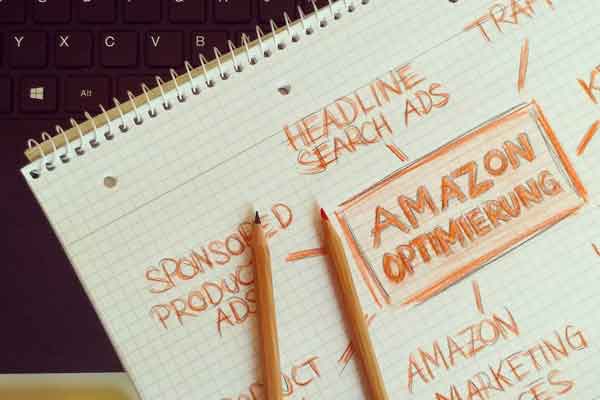 Y X C V B
Alt
TRAF
HEADLINE
SEARCH ADS
AMAZON
OPTIMIERUNG
SPONSORED
PRODUCT
ADS
AMAZON
MARKETING